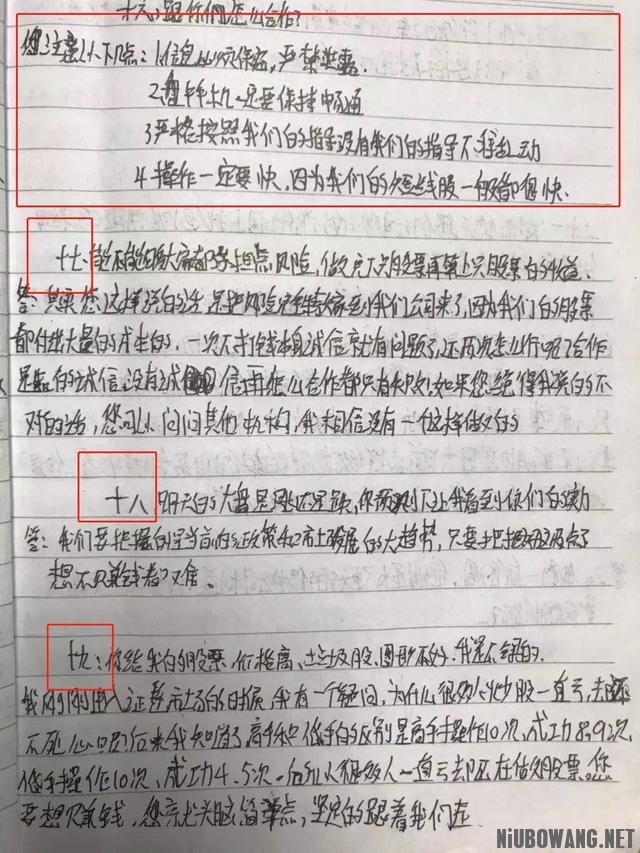 十六,跟你们怎么合作?
您注意以下几点:1.信息必须保密,严禁泄露.
2,盘中手机一定要保持畅通
3严格按照我们的指导没有我们的指导不能乱动
4.操作一定要快,因为我们的短线股一般都很快.
十七:能不能大家都承担点风险,做完下只股票再算上只股票的收益.
答:其实您这样说的话,是把风险完全转嫁到我们公司来了,因为我们的股票
都付出大量的成本的,一次不打钱本身诚信就有问题了,还两次怎么行呢?合作
是靠的诚信,没有诚信再怎么合作都只有失败.如果您觉得我说的不
对的话,您可以问问其他机构,我相信没有一个这样做的
十八 明天的大盘是涨还是跌,你预测下让我看到你们的实力
答:我们要把握的是当前的证政策和市场发展的大趋势,只要把握那个点了
想不赚钱都难。
十九:你给我的股票,价格高,垃圾股,图形不好.我是不会买的.
我刚刚进入证券市场的时候我有一个疑问,为什么很多人炒股一直亏,去还
不死心呢?后来我知道了高手和低手的区别是高手操作10次,成功8.9次
低手操作10次,成功4.5次.所以很多人一直亏却还在做股票.您
要想赚钱,您就头脑简单点,坚定的跟着我们走
NiUBOWANG.NET